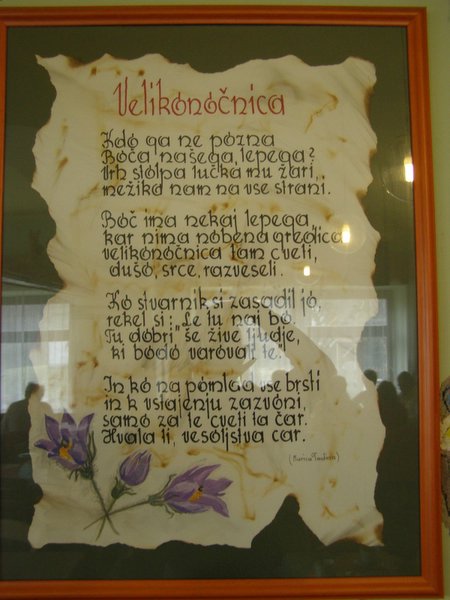 Velikonočnica
Kdo ga ne pozna
Boča našega, lepega?
Vrh stolpa lučka mu žari,
mežika nam na vse strani.
Boč ima nekaj lepega,
kar nima nobena gredica
velikonočnica tam cveti,
dušo, srce, razveseli.
Ko stvarnik si zasadil jo,
rekel si: "Le tu naj bo.
Tu dobri še žive ljudje,
ki bodo varovali te",
In ko na pomlad vse brsti
in k vstajenju zazvoni,
samo za te cveti ta čar.
Hvala ti, vesoljstva car.